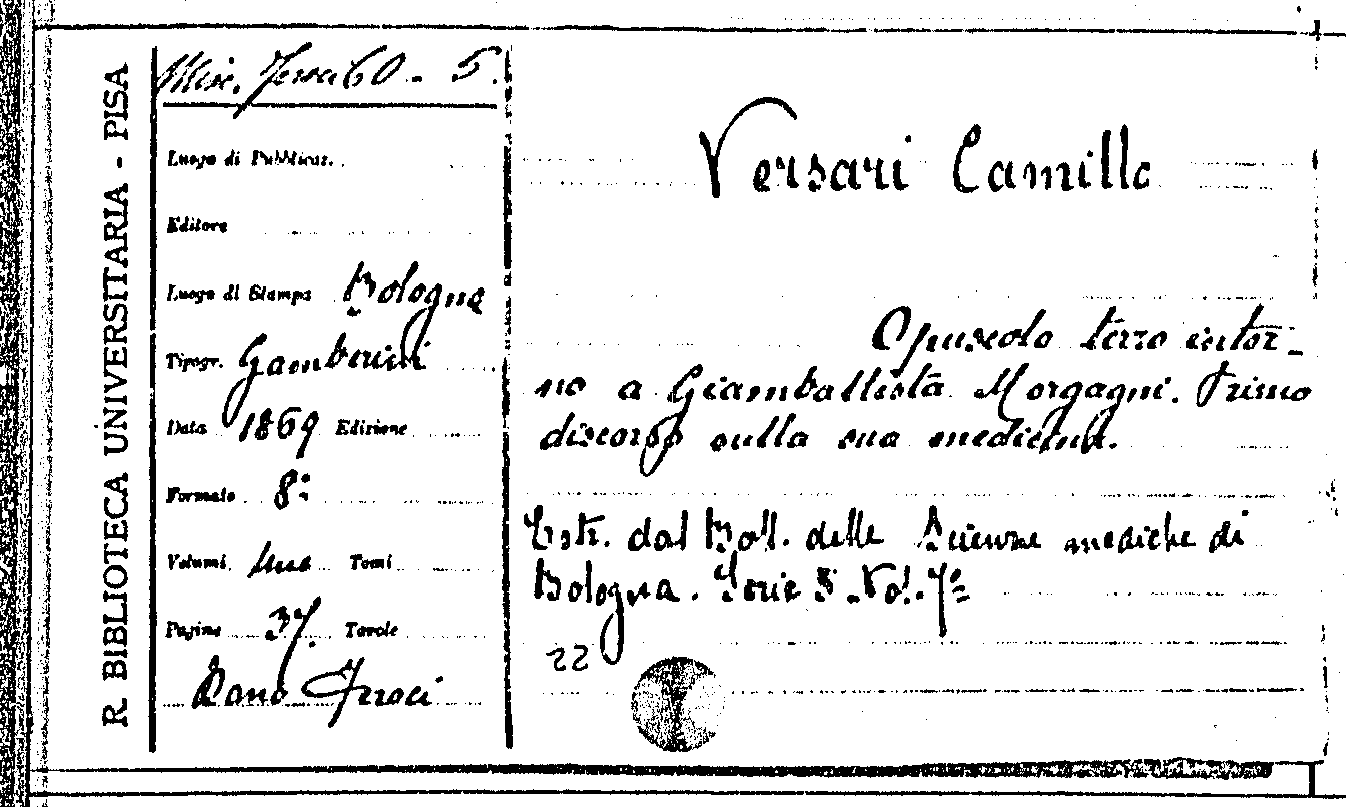 R. BIBLIOTECA UNIVERSITARIA - PISA
Misc. Feroci 60 - 5.
Luogo di Pubblicaz.
Editore
Luogo di Stampa Bologna
Tipogr. Gamberini
Data 1869 Edizione
Formato 8°
Volumi Uno Tomi
Pagine 37. Tavole
Dono Feroci
Versari Camillo
Opuscolo terzo intor-
no a Giamballista Morgagni. Primo
discorso sulla sua medicina.
Estr. dal Boll. delle Scienze mediche di
Bologna. Serie 5 Vol. 7°
22